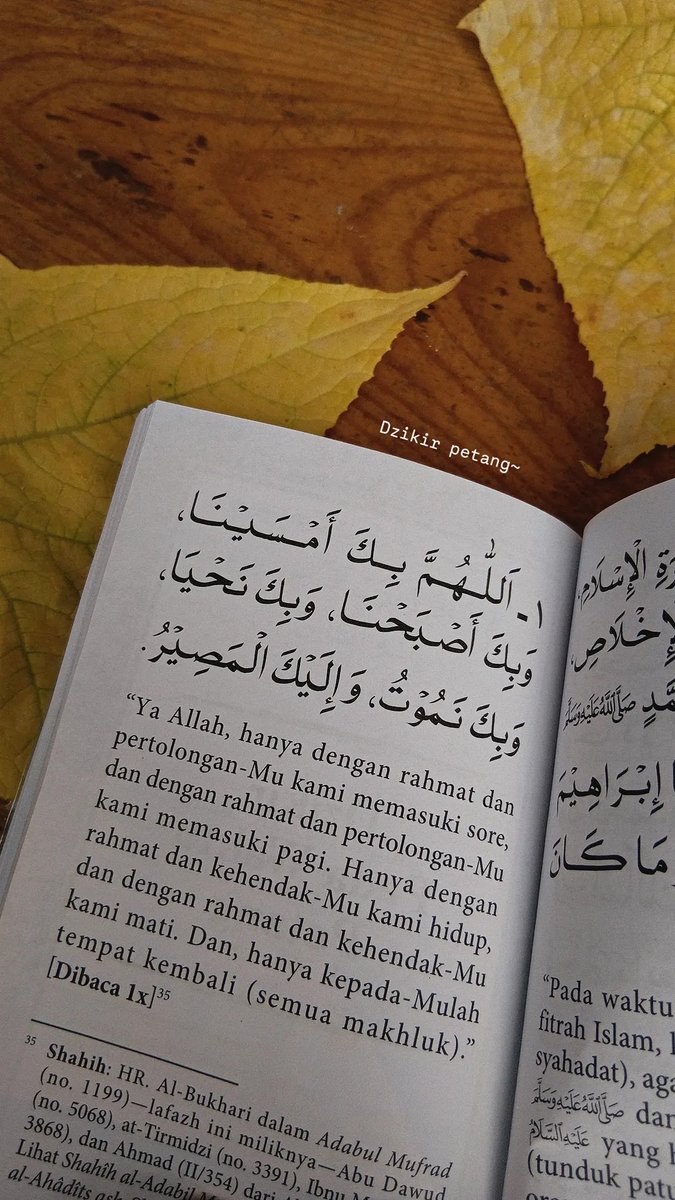 Dzikir petang~
١- اَللّٰهُمَّ بِكَ أَمْسَيْنَا،
وَبِكَ أَصْبَحْنَا، وَبِكَ نَحْيَا،
وَبِكَ نَمُوْتُ، وَإِلَيْكَ الْمَصِيْرُ.
“Ya Allah, hanya dengan rahmat dan
pertolongan-Mu kami memasuki sore,
dan dengan rahmat dan pertolongan-Mu
kami memasuki pagi. Hanya dengan
rahmat dan kehendak-Mu kami hidup,
dan dengan rahmat dan kehendak-Mu
kami mati. Dan, hanya kepada-Mulah
tempat kembali (semua makhluk).”
[Dibaca 1x]³⁵
³⁵ Shahih: HR. Al-Bukhari dalam Adabul Mufrad
(no. 1199)—lafazh ini miliknya—Abu Dawud
(no. 5068), at-Tirmidzi (no. 3391), Ibnu
3868), dan Ahmad (II/354) dari
Lihat Shahîh al-Adabil
al-Ahâdîts
الْإِسْلَامِ،
مَّدٍ ﷺ
إِبْرَاهِيْمَ
مَا كَانَ
“Pada waktu
fitrah Islam,
syahadat),
ﷺ dan
عَلَيْهِ السَّلَامُ yang
(tunduk